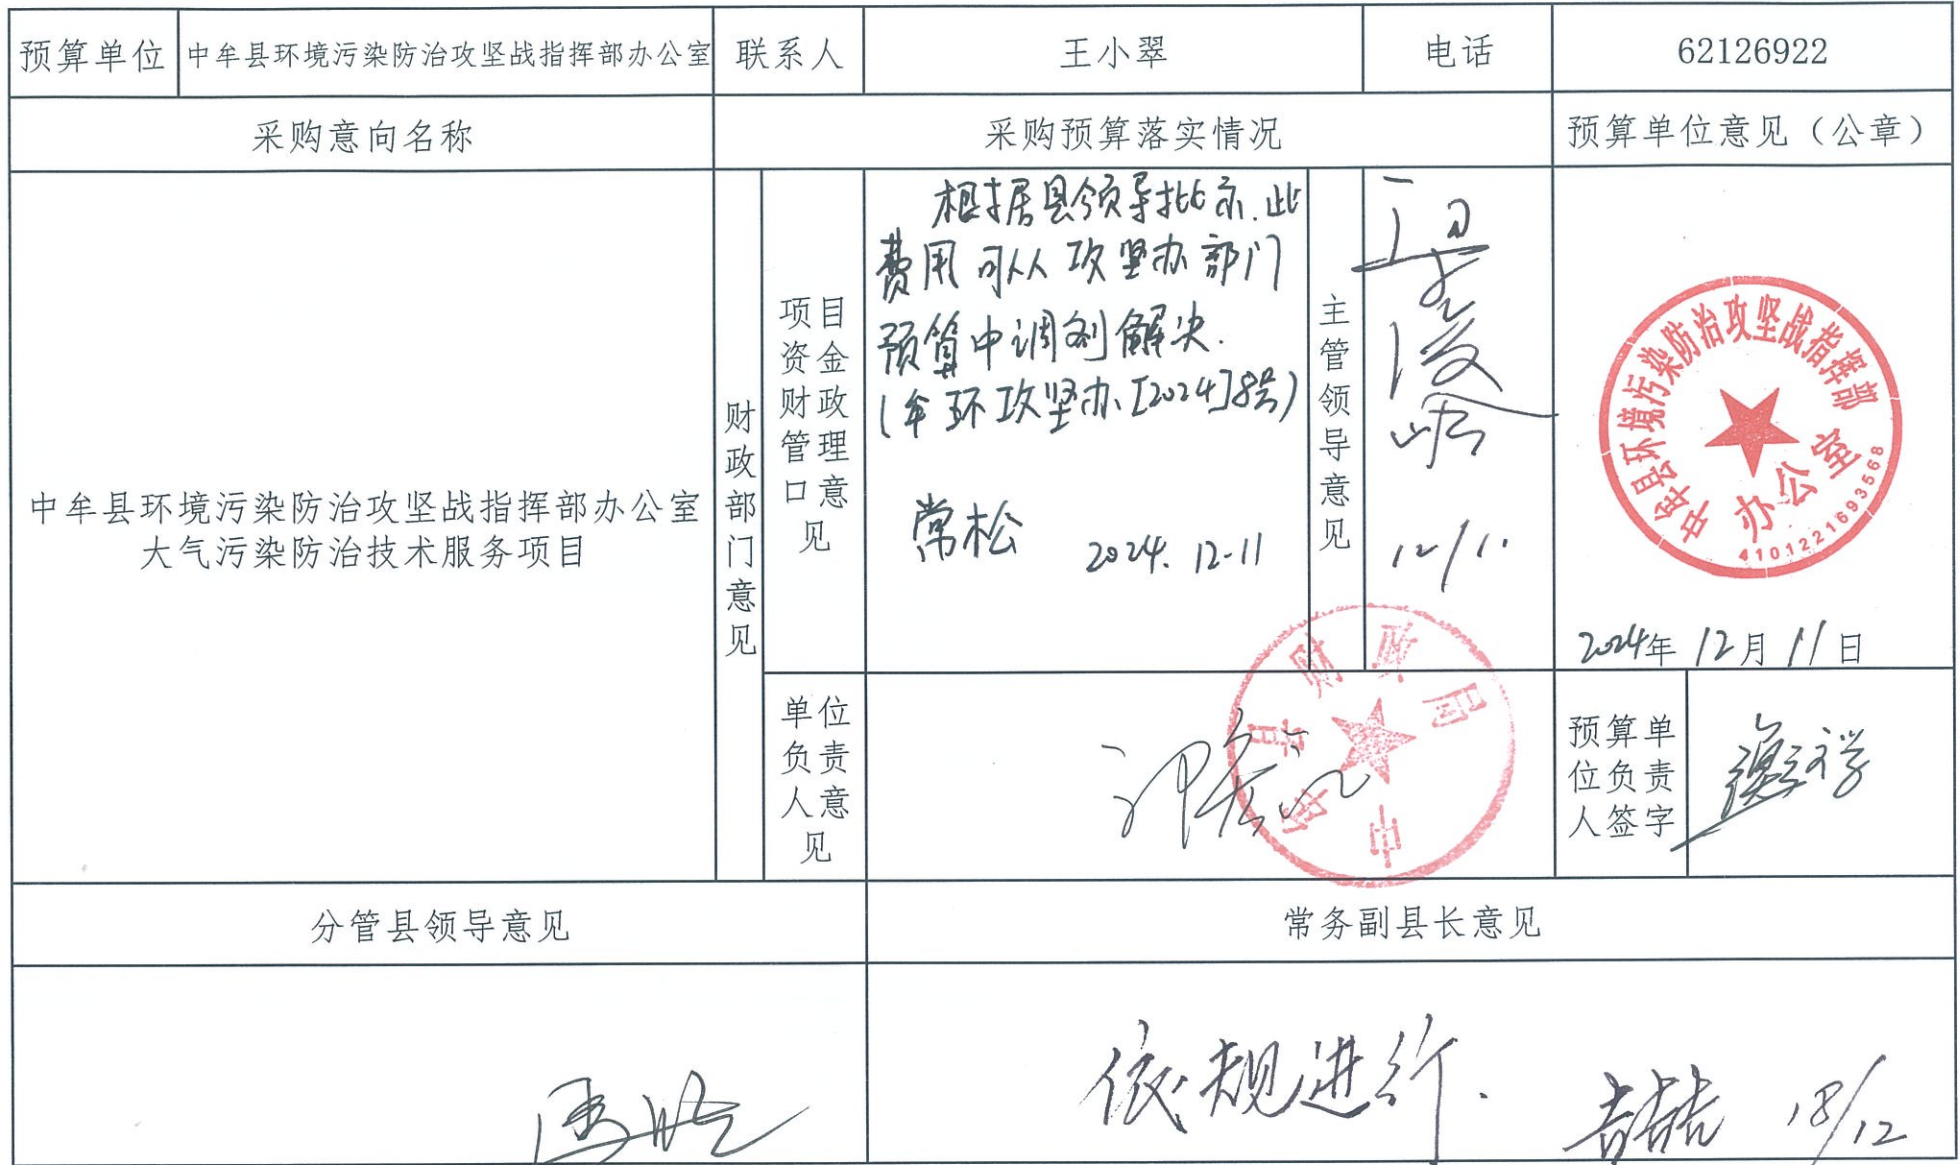 预算单位 中牟县环境污染防治攻坚战指挥部办公室 联系人 王小翠 电话 62126922
采购意向名称 采购预算落实情况 预算单位意见（公章）
中牟县环境污染防治攻坚战指挥部办公室
大气污染防治技术服务项目
财政部门意见
项目
资金
财政
管理
口意
见
根据县领导批示.此
费用可从攻坚办部门
预算中调剂解决.
(牟环攻坚办[2024]8号)
常松 2024.12-11
主管领导意见
12/11
中牟县环境污染防治攻坚战指挥部
办公室
4101221693568
2024年12月11日
单位
负责
人意
见
中牟县财政局
预算单
位负责
人签字
分管县领导意见 常务副县长意见
依规进行.
18/12